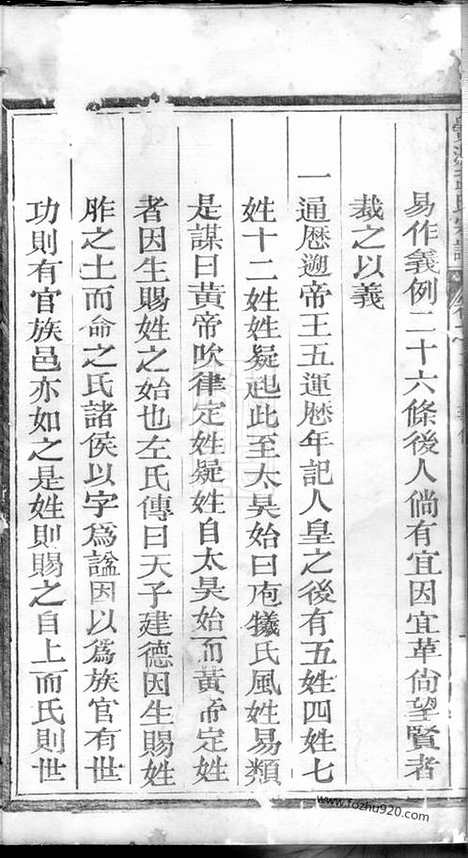 易作義例二十六條後人倘有宜因宜革尙望賢者
裁之以義
一通歷遡帝王五運歷年記人皇之後有五姓四姓七
姓十二姓姓疑起此至太昊始曰庖犧氏風姓易類
是謀曰黃帝吹律定姓疑姓自太昊始而黃帝定姓
者因生賜姓之始也左氏傳曰天子建德因生賜姓
胙之土而命之氏諸侯以字爲諡因以爲族官有世
功則有官族邑亦如之是姓則賜之自上而氏則世
www.fozhu920.com